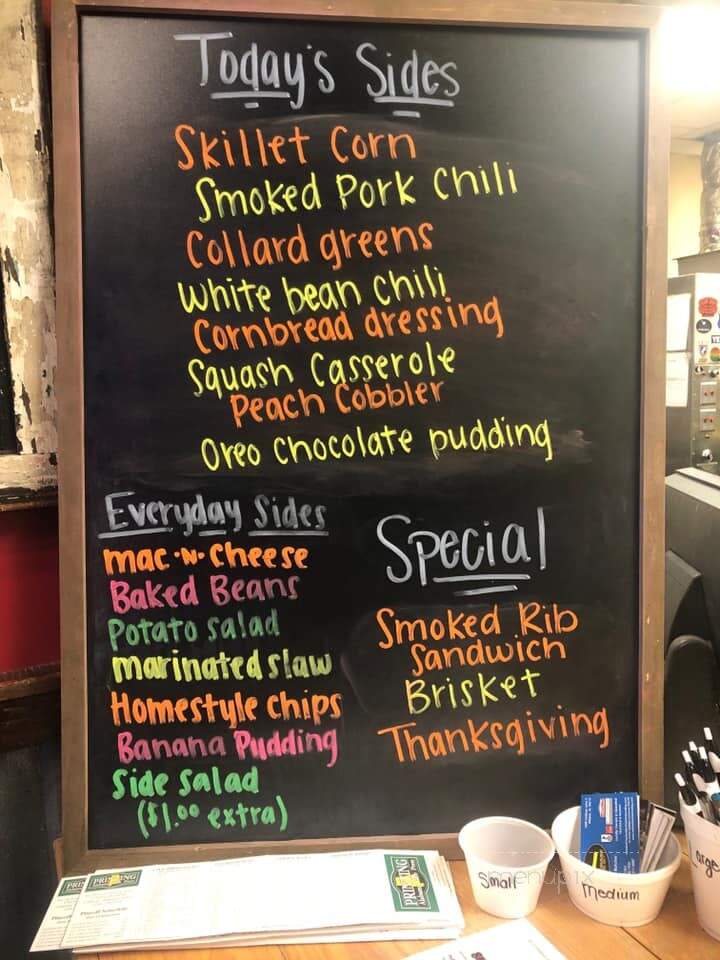 Today's Sides
Skillet Corn
Smoked Pork Chili
Collard greens
White bean chili
Cornbread dressing
Squash Casserole
Peach Cobbler
Oreo Chocolate pudding
Everyday Sides
mac-N-Cheese
Baked Beans
Potato salad
marinated slaw
Homestyle chips
Banana Pudding
Side Salad
($1.00 extra)
Special
Smoked Rib
Sandwich
Brisket
Thanksgiving
PRINTING
Small
Medium
Large
menupix